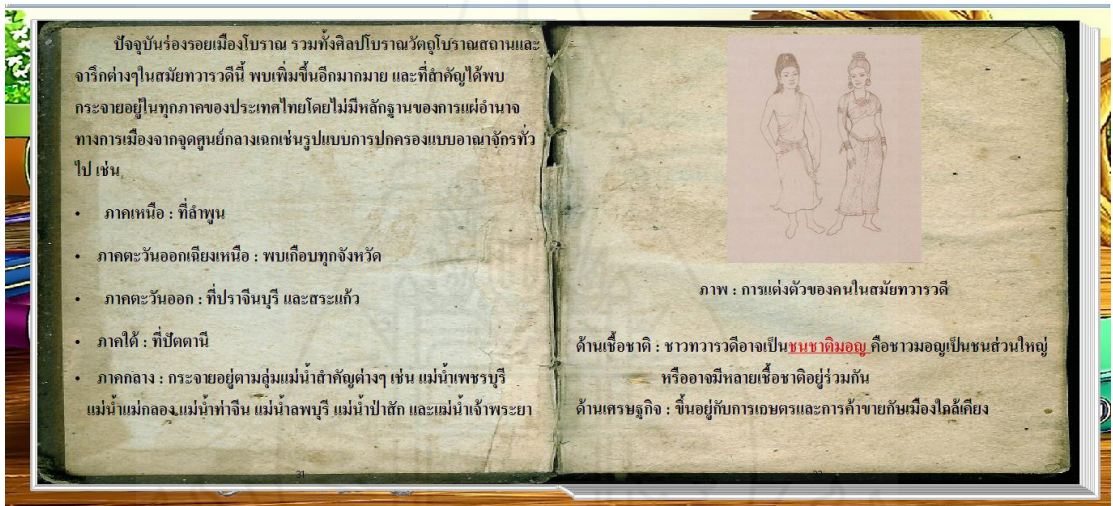 ปัจจุบันร่องรอยเมืองโบราณ รวมทั้งศิลปโบราณวัตถุโบราณสถานและ
จารึกต่างๆในสมัยทวารวดีนี้ พบเพิ่มขึ้นอีกมากมาย และที่สำคัญได้พบ
กระจายอยู่ในทุกภาคของประเทศไทยโดยไม่มีหลักฐานของการแผ่อำนาจ
ทางการเมืองจากจุดศูนย์กลางเฉกเช่นรูปแบบการปกครองแบบอาณาจักรทั่ว
ไป เช่น
• ภาคเหนือ : ที่ลำพูน
• ภาคตะวันออกเฉียงเหนือ : พบเกือบทุกจังหวัด
• ภาคตะวันออก : ที่ปราจีนบุรี และสระแก้ว
• ภาคใต้ : ที่ปัตตานี
• ภาคกลาง : กระจายอยู่ตามลุ่มแม่น้ำสำคัญต่างๆ เช่น แม่น้ำเพชรบุรี
แม่น้ำแม่กลอง แม่น้ำท่าจีน แม่น้ำลพบุรี แม่น้ำป่าสัก และแม่น้ำเจ้าพระยา
31
ภาพ : การแต่งตัวของคนในสมัยทวารวดี
ด้านเชื้อชาติ : ชาวทวารวดีอาจเป็นชนชาติมอญ คือชาวมอญเป็นชนส่วนใหญ่
หรืออาจมีหลายเชื้อชาติอยู่ร่วมกัน
ด้านเศรษฐกิจ : ขึ้นอยู่กับการเกษตรและการค้าขายกับเมืองใกล้เคียง